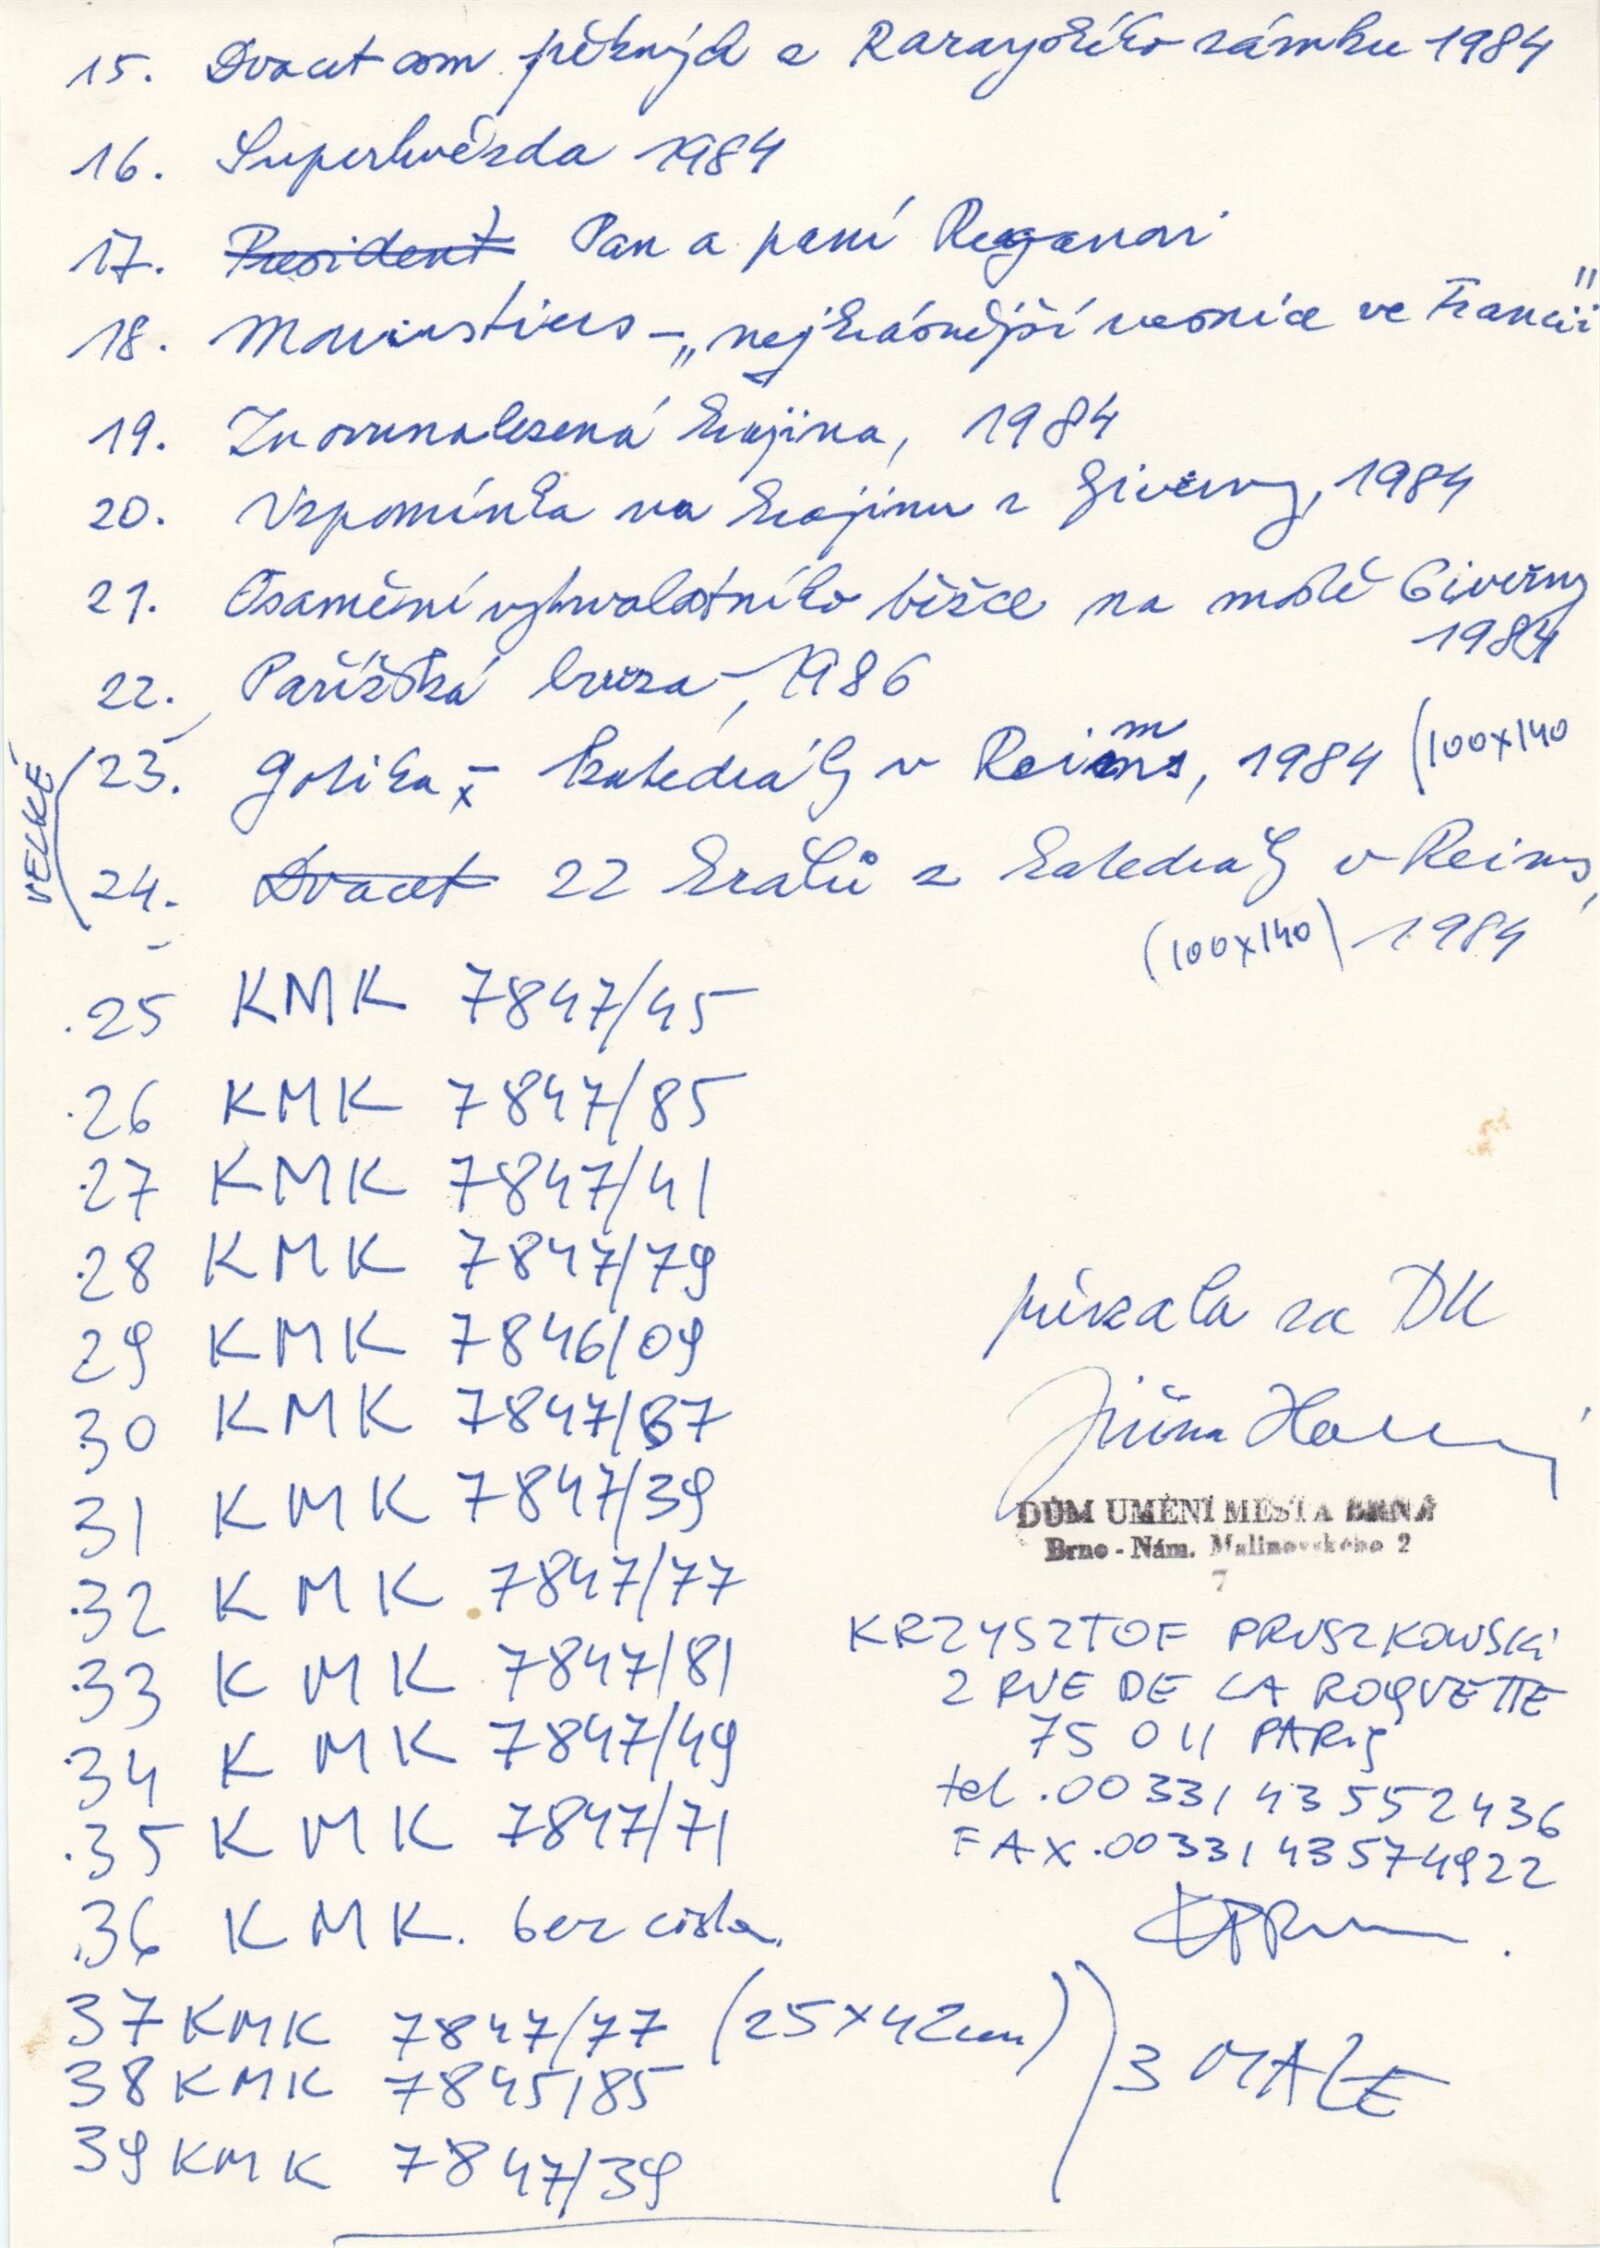 15. Dvacet osm pěkných z Raray zámku 1984
16. Superhvězda 1984
17. President Pan a paní Reganovi
18. Moustiers – „nejkrásnější vesnice ve Francii"
19. Znovunalezená krajina, 1984
20. Vzpomínka na krajinu z Giverny, 1984
21. Osamění vytrvalostního běžce na mostě Giverny
1984
22. Pařížská burza, 1986
VELKÉ
23. Gotika – katedrály v Reims, 1984 (100x140
24. Dvacet 22 králů z katedrály v Reims,
(100x140) 1984
25 KMK 7847/45
26 KMK 7847/85
27 KMK 7847/41
28 KMK 7847/79
29 KMK 7846/09
30 KMK 7847/87
31 KMK 7847/39
32 KMK 7847/77
33 KMK 7847/81
34 KMK 7847/49
35 KMK 7847/71
36 KMK. bez čísla.
37 KMK 7847/77 (25x42cm)
38 KMK 7845/85
39 KMK 7847/39
3 MAŁE
převzala za DU
Jiřina
DŮM UMĚNÍ MĚSTA BRNA
Brno - Nám. Malinovského 2
7
KRZYSZTOF PRUSZKOWSKI
2 RUE DE LA ROQUETTE
75 011 PARIS
tel. 00 331 43 55 24 36
FAX. 00 331 43 57 49 22